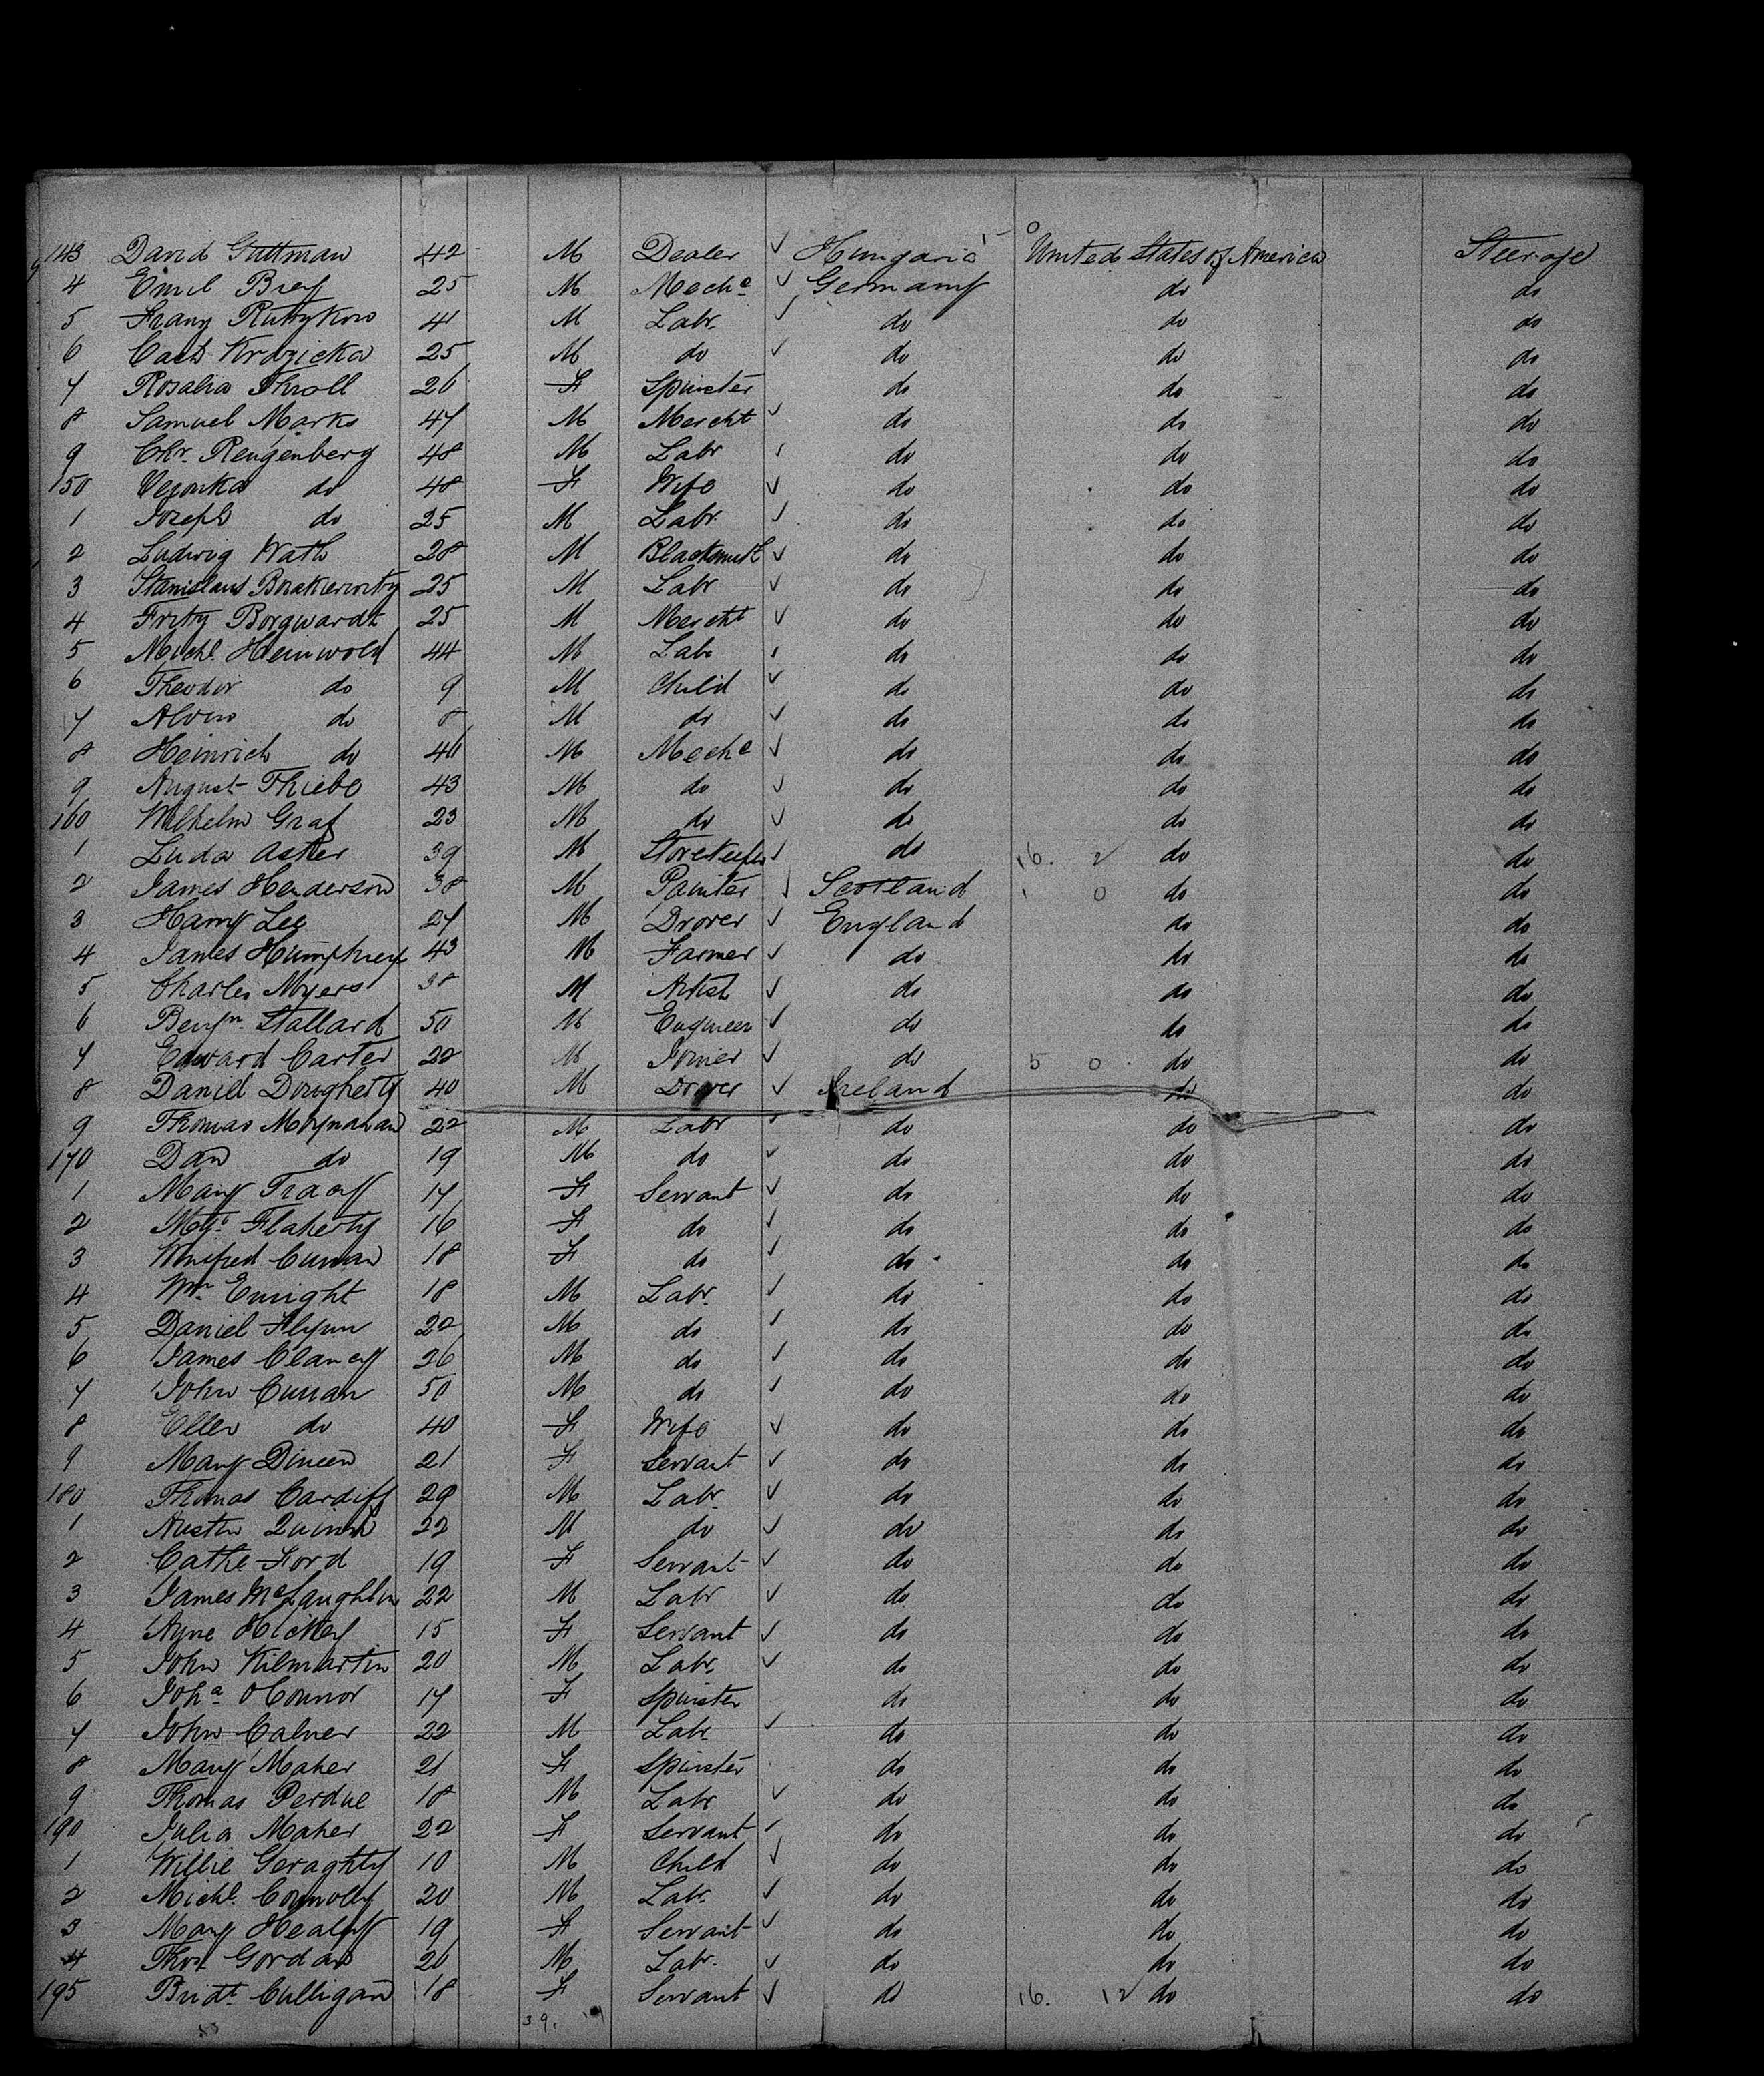 143 David Guttman 42 M Dealer ✓ Hungaria United States of America Steerage
4 Emil Bref 25 M Meche ✓ Germany do do
5 Franz 41 M Labr ✓ do do do
6 Carl 25 M do ✓ do do do
7 Rosalia Throll 26 F Spinster do do do
8 Samuel Marks 47 M Mercht ✓ do do do
9 Chr. Rengenberg 48 M Labr ✓ do do do
150 Veronika do 48 F Wife ✓ do do do
1 Jozeph do 25 M Labr ✓ do do do
2 Ludwig Wath 28 M Blacksmith ✓ do do do
3 Stanislaus 25 M Labr ✓ do do do
4 Fritz Borgwardt 25 M Mercht ✓ do do do
5 Michl. Heinwold 44 M Labr do do do
6 Theodor do 9 M Child ✓ do do do
7 Alvin do 8 M do ✓ do do do
8 Heinrich do 46 M Meche ✓ do do do
9 August Thiebe 43 M do ✓ do do do
160 Wilhelm Graf 23 M do ✓ do do do
1 Luda Asher 39 M Storekeeper ✓ do 16. 2 do do
2 James Henderson 38 M Painter ✓ Scotland 1 0 do do
3 Harry Lee 27 M Drover ✓ England do do
4 James Humphrey 43 M Farmer ✓ do do do
5 Charles Myers 38 M Artist ✓ do do do
6 Benjn. Stallard 50 M Engineer ✓ do do do
7 Edward Carter 22 M Joiner ✓ do 5 0 do do
8 Daniel Dougherty 40 M Drover ✓ Ireland do do
9 Thomas Moynahan 22 M Labr ✓ do do do
170 Dan do 19 M do ✓ do do do
1 Mary Tracy 17 F Servant ✓ do do do
2 Mgt. Flaherty 16 F do ✓ do do do
3 Winifred Curran 18 F do ✓ do do do
4 Wm. Enright 18 M Labr. ✓ do do do
5 Daniel Flynn 22 M do ✓ do do do
6 James Clancy 26 M do ✓ do do do
7 John Curran 50 M do ✓ do do do
8 Ellen do 40 F Wife ✓ do do do
9 Mary Dineen 21 F Servant ✓ do do do
180 Thomas Cardiff 29 M Labr. ✓ do do do
1 Austin Quinn 22 M do ✓ do do do
2 Cathe Ford 19 F Servant ✓ do do do
3 James McLaughlin 22 M Labr ✓ do do do
4 Anne Hickey 15 F Servant ✓ do do do
5 John Kilmartin 20 M Labr. ✓ do do do
6 Joha. O'Connor 17 F Spinster do do do
7 John Calner 22 M Labr. ✓ do do do
8 Mary Maher 21 F Spinster do do do
9 Thomas Perdue 18 M Labr ✓ do do do
190 Julia Maher 22 F Servant ✓ do do do
1 Willie Geraghty 10 M Child ✓ do do do
2 Michl. Connolly 20 M Labr. ✓ do do do
3 Mary Healy 19 F Servant ✓ do do do
4 Thos. Gordan 26 M Labr. ✓ do do do
195 Bridt. Culligan 18 F Servant ✓ do 16. 12 do do
39. 14